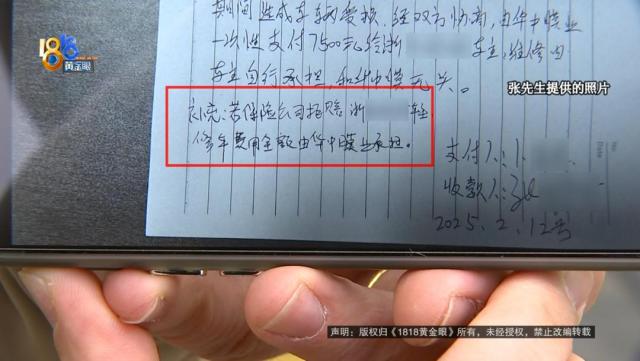 1818
黄金眼
期间造成车辆受损,经双方协商,由华中膜业
一次性支付7500元给浙 车主,维修由
车主自行承担,和华中膜无关。
张先生提供的照片
补充:若保险公司拒赔浙 车
修车费用全款由华中膜业承担。
支付人:
收款人:
2025.2.12号
声明:版权归《1818黄金眼》所有,未经授权,禁止改编转载